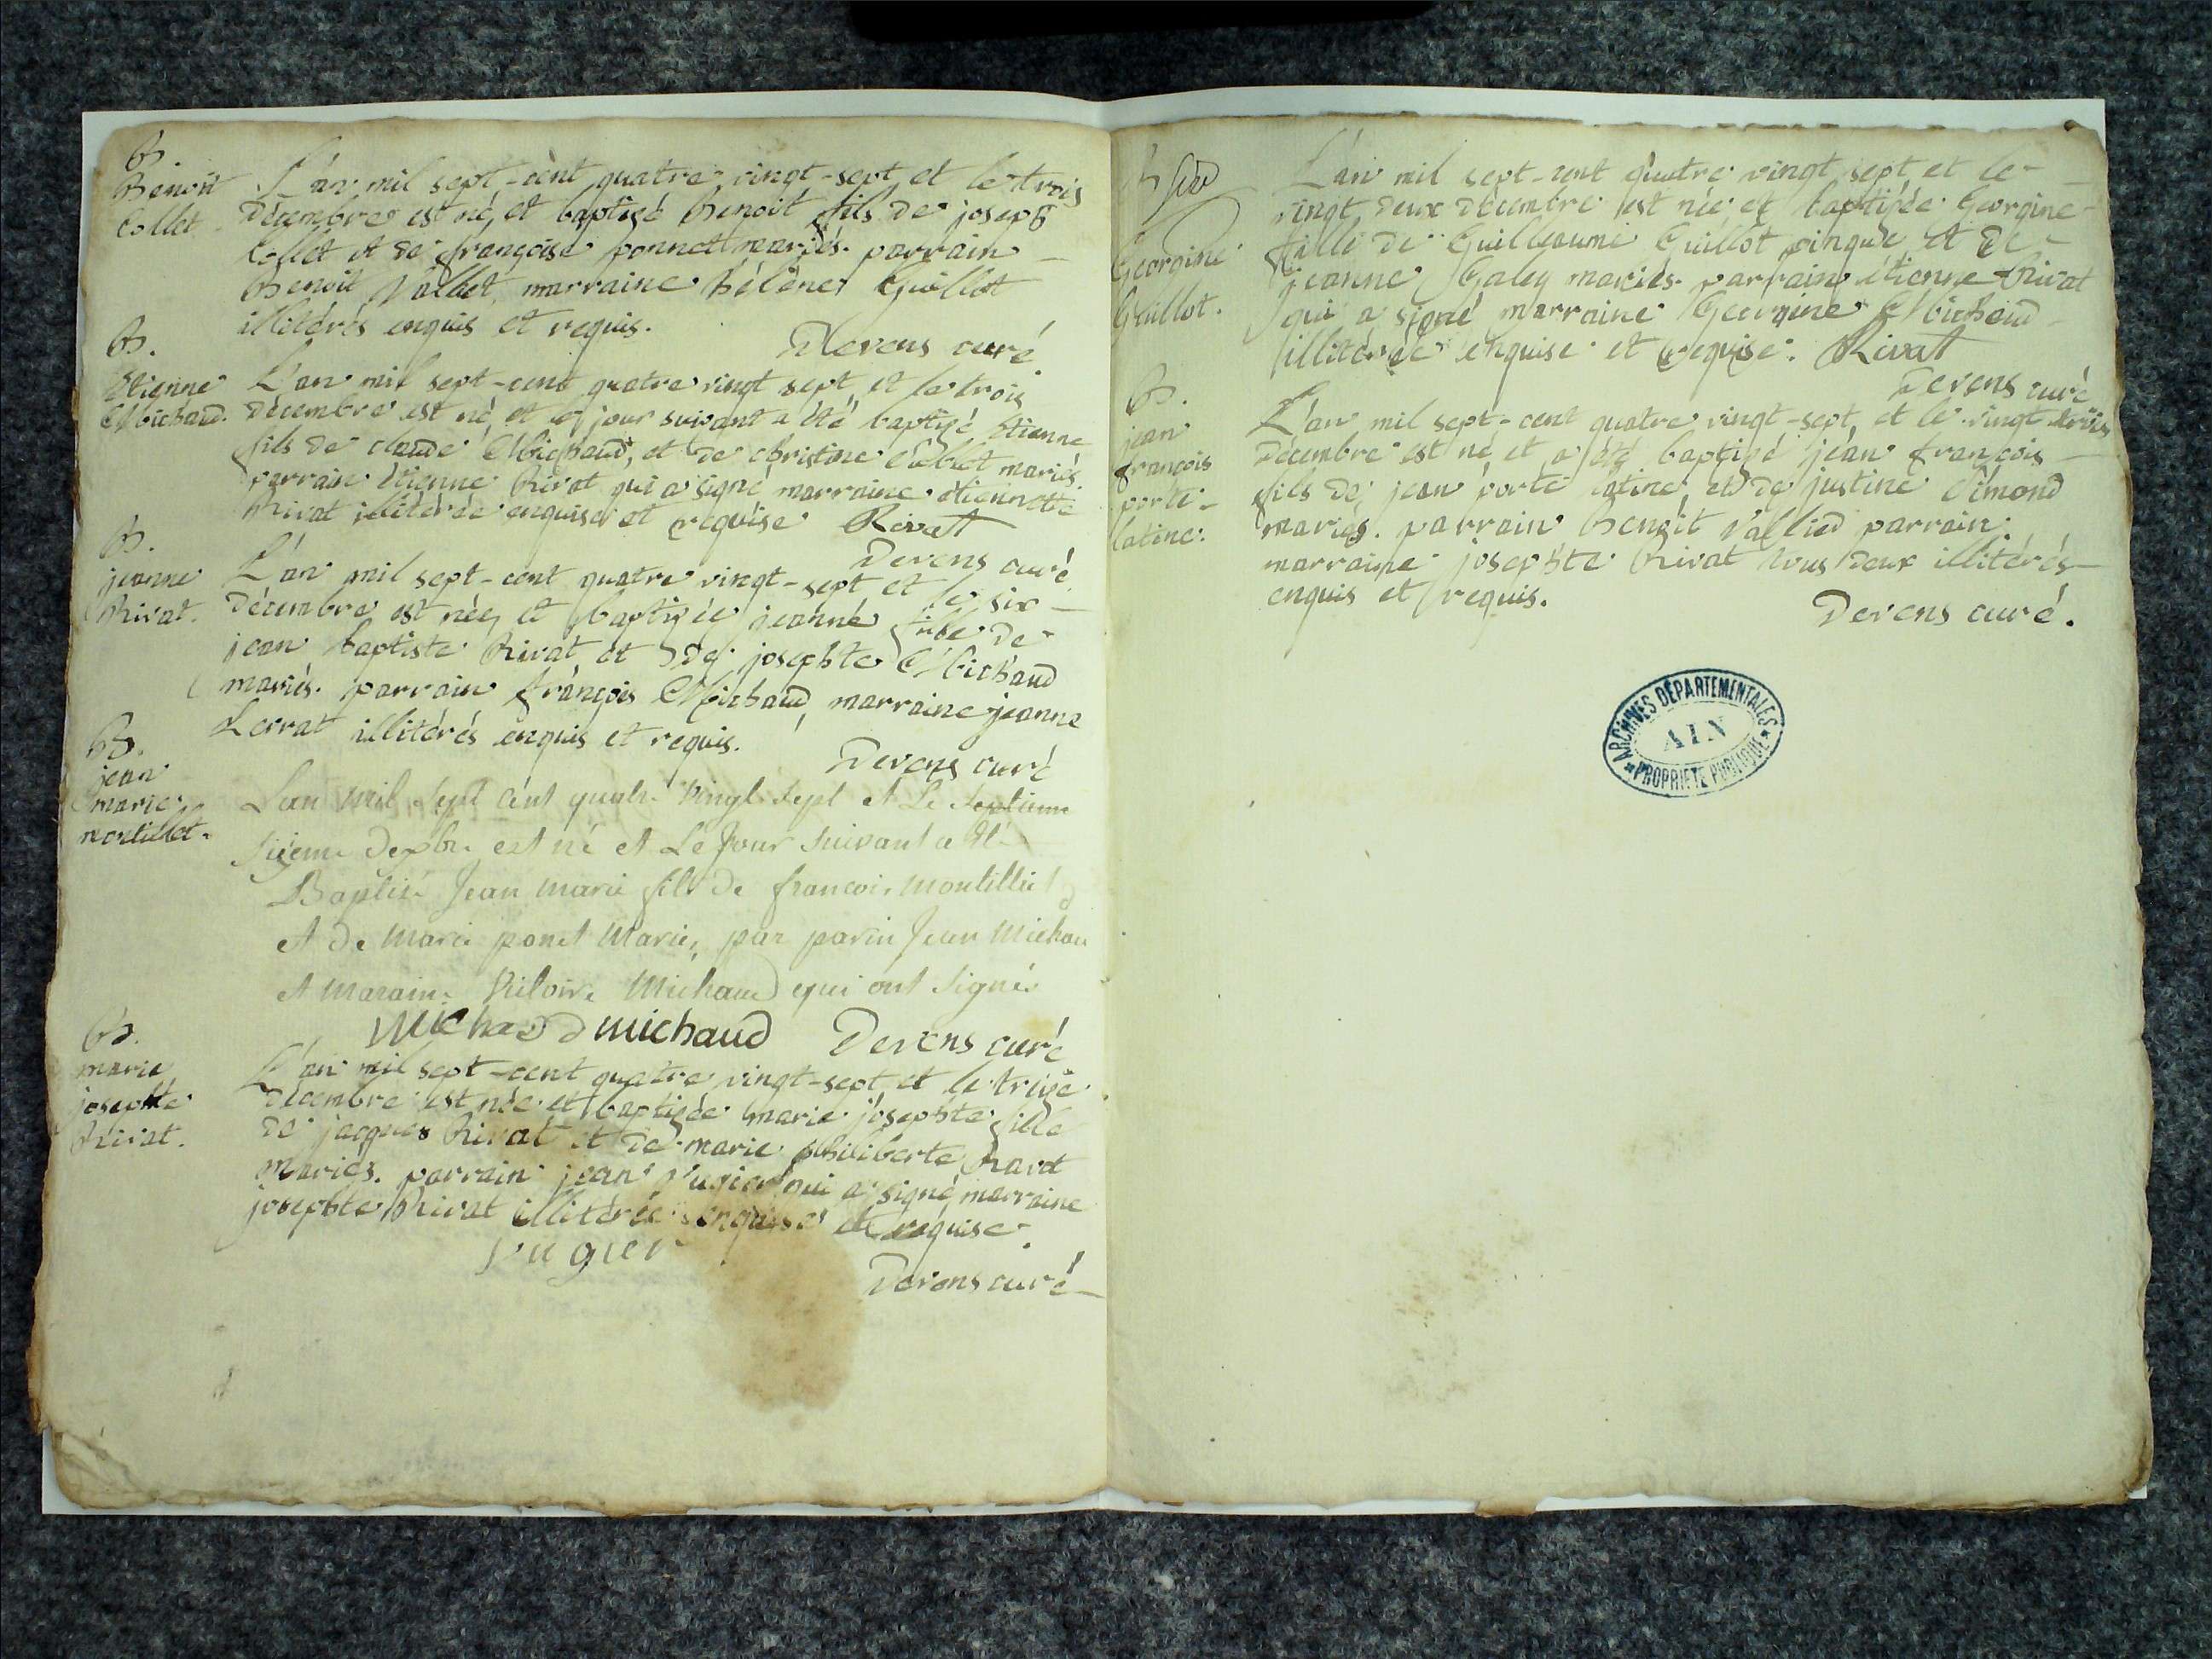 B.
Benoit
Collet
L'an mil sept-cent quatre vingt-sept et le trois
décembre est né, et baptizé Benoit fils de joseph
Collet et de françoise ponnet mariés. parrain
Benoit Vallet, marraine hélène Guillot
illitérés enquis et requis.
Derens curé
B.
Etienne
Michaud.
L'an mil sept-cent quatre vingt sept et le trois
décembre est né, et le jour suivant a été baptizé Etienne
fils de claude Michaud, et de christine mariés.
parrain Etienne Rivat qui a signé marraine étiennette
Rivat illitérée enquise et requise Rivat
Derens curé
B.
jeanne
Rivat.
L'an mil sept-cent quatre vingt-sept et le six
décembre est née, et baptizée jeanne fille de
jean baptiste Rivat et de josephte Michaud
mariés. parrain françois Michaud, marraine jeanne
Lerrat illitérés enquis et requis.
Derens curé
B.
jean
marie
montillet.
L'an mil sept cent quatre vingt sept et le septieme
sizieme dexbre est né et le jour suivant a été
Baptisé Jean Marie fils de francois Montilliet
et de Marie ponet Mariés, par parin Jean Michau
et Maraine Victoire Michaud qui ont signés
Michaud michaud Derens curé
B.
marie
josephte
Rivat.
L'an mil sept-cent quatre vingt-sept et le treize
décembre est née et baptizée marie josephte fille
de jacques Rivat et de marie philiberte Ravat
mariés. parrain jean Pugier qui a signé marraine
josephte Rivat illitérée enquise et requise.
Pugier
Derens curé
B
Georgine
Guillot.
L'an mil sept-cent quatre vingt sept et le
vingt deux décembre est née et baptizée Georgine
fille de Guilleaume Guillot pinque et de
jeanne Galey mariés. parrain étienne Rivat
qui a signé marraine Georgine Michaud
illitérée enquise et requise. Rivat
Derens curé
B.
jean
françois
porte-
latine.
L'an mil sept-cent quatre vingt-sept, et le vingt trois
décembre est né et a été baptizé jean françois
fils de jean porte latine, et de justine Eimond
mariés. parrain Benoit Vallied parrain.
marraine josephte Rivat tous deux illitérés
enquis et requis.
Derens curé.
ARCHIVES DÉPARTEMENTALES
AIN
PROPRIÉTÉ PUBLIQUE